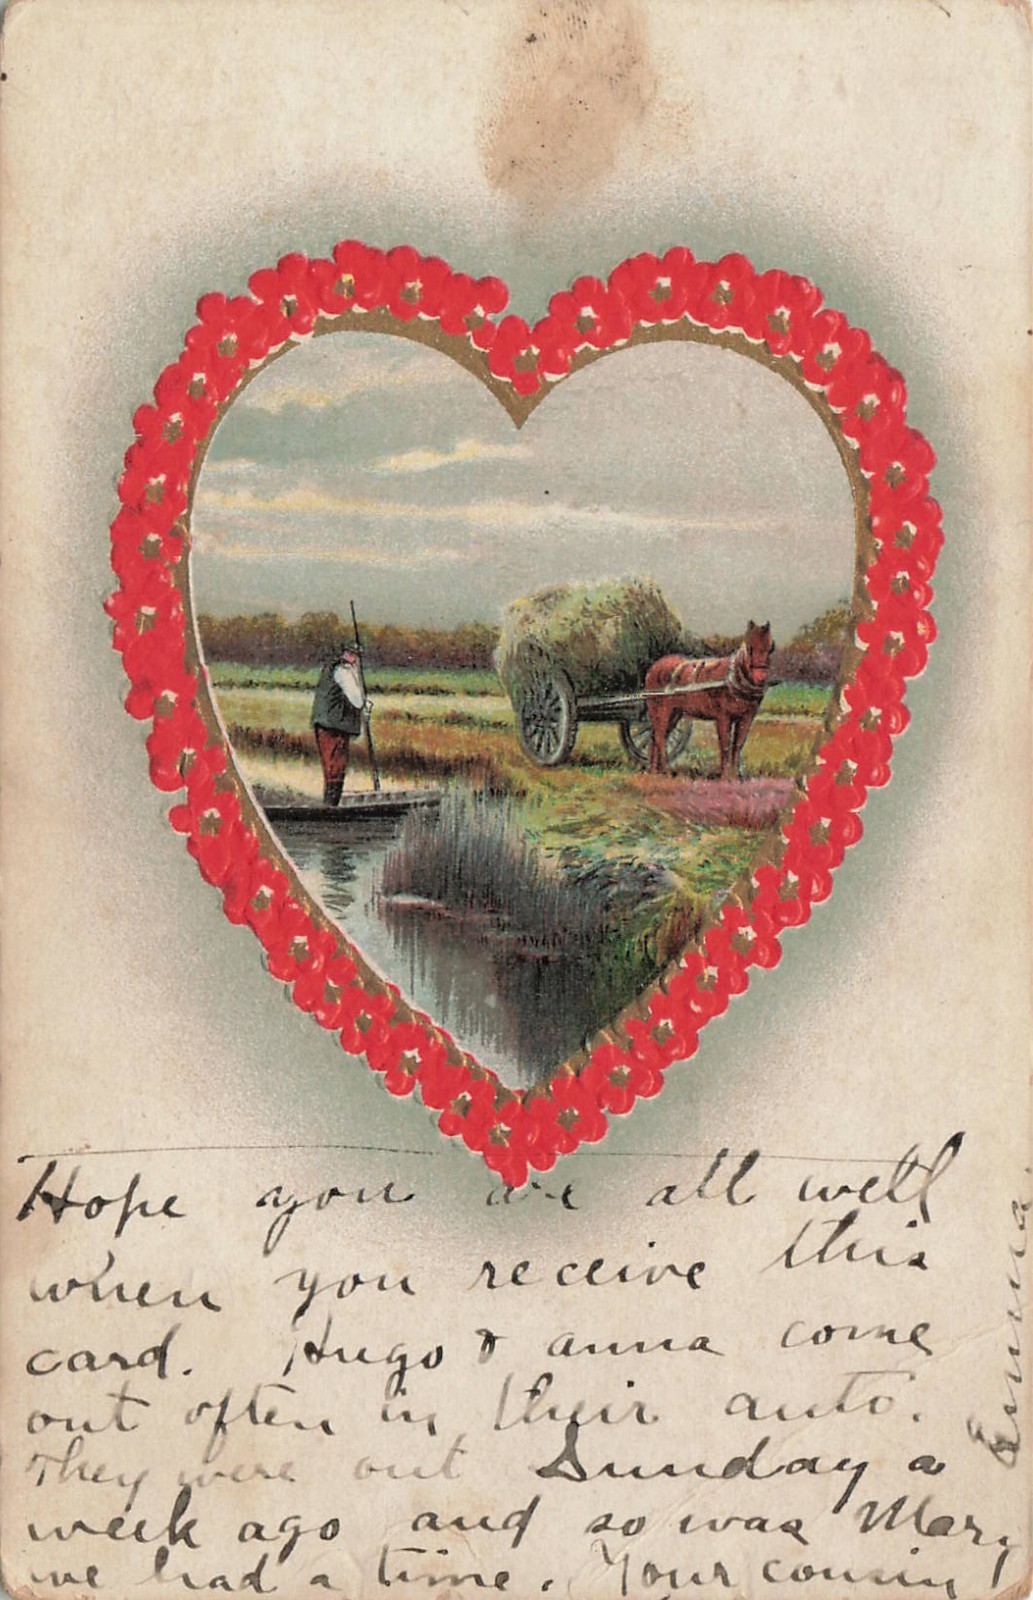 Hope you are all well
when you receive this
card. Hugo & anna come
out often in their auto.
They were out Sunday a
week ago and so was Mary
we had a time. Your cousin
Emma